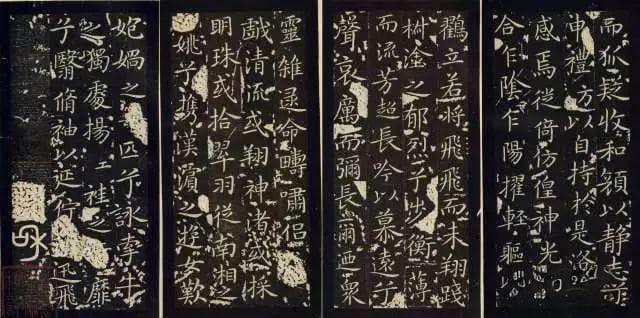 而狐疑收和顏以静志兮
申禮防以自持於是洛
感焉徙倚仿偟神光
合乍陰乍陽擢輕軀以
鸖立若將飛飛而未翔踐
椒塗之郁烈兮步衡薄
而流芳超長吟以慕遠兮
聲哀厲而彌長爾迺衆
靈雜遝命疇嘯侣
戲清流或翔神渚或採
明珠或拾翠羽從南湘之
姚兮攜漢濱之遊女歎
妃媧之匹兮詠牽牛
之獨處揚袿之靡
兮翳脩袖以延佇迅飛